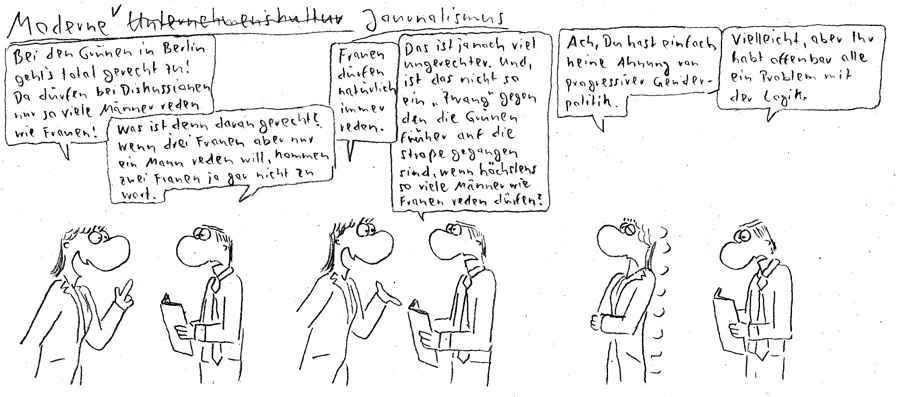 Moderne Unternehmenskultur Journalismus
Bei den Grünen in Berlin
geht's total gerecht zu!
Da dürfen bei Diskussionen
nur so viele Männer reden
wie Frauen!
Was ist denn daran gerecht?
Wenn drei Frauen aber nur
ein Mann reden will, kommen
zwei Frauen ja gar nicht zu
Wort.
Frauen
dürfen
natürlich
immer
reden.
Das ist ja noch viel
ungerechter. Und,
ist das nicht so
ein „Zwang" gegen
den die Grünen
früher auf die
Straße gegangen
sind, wenn höchstens
so viele Männer wie
Frauen reden dürfen?
Ach, Du hast einfach
keine Ahnung von
progressiver Gender-
politik.
Vielleicht, aber Ihr
habt offenbar alle
ein Problem mit
der Logik.